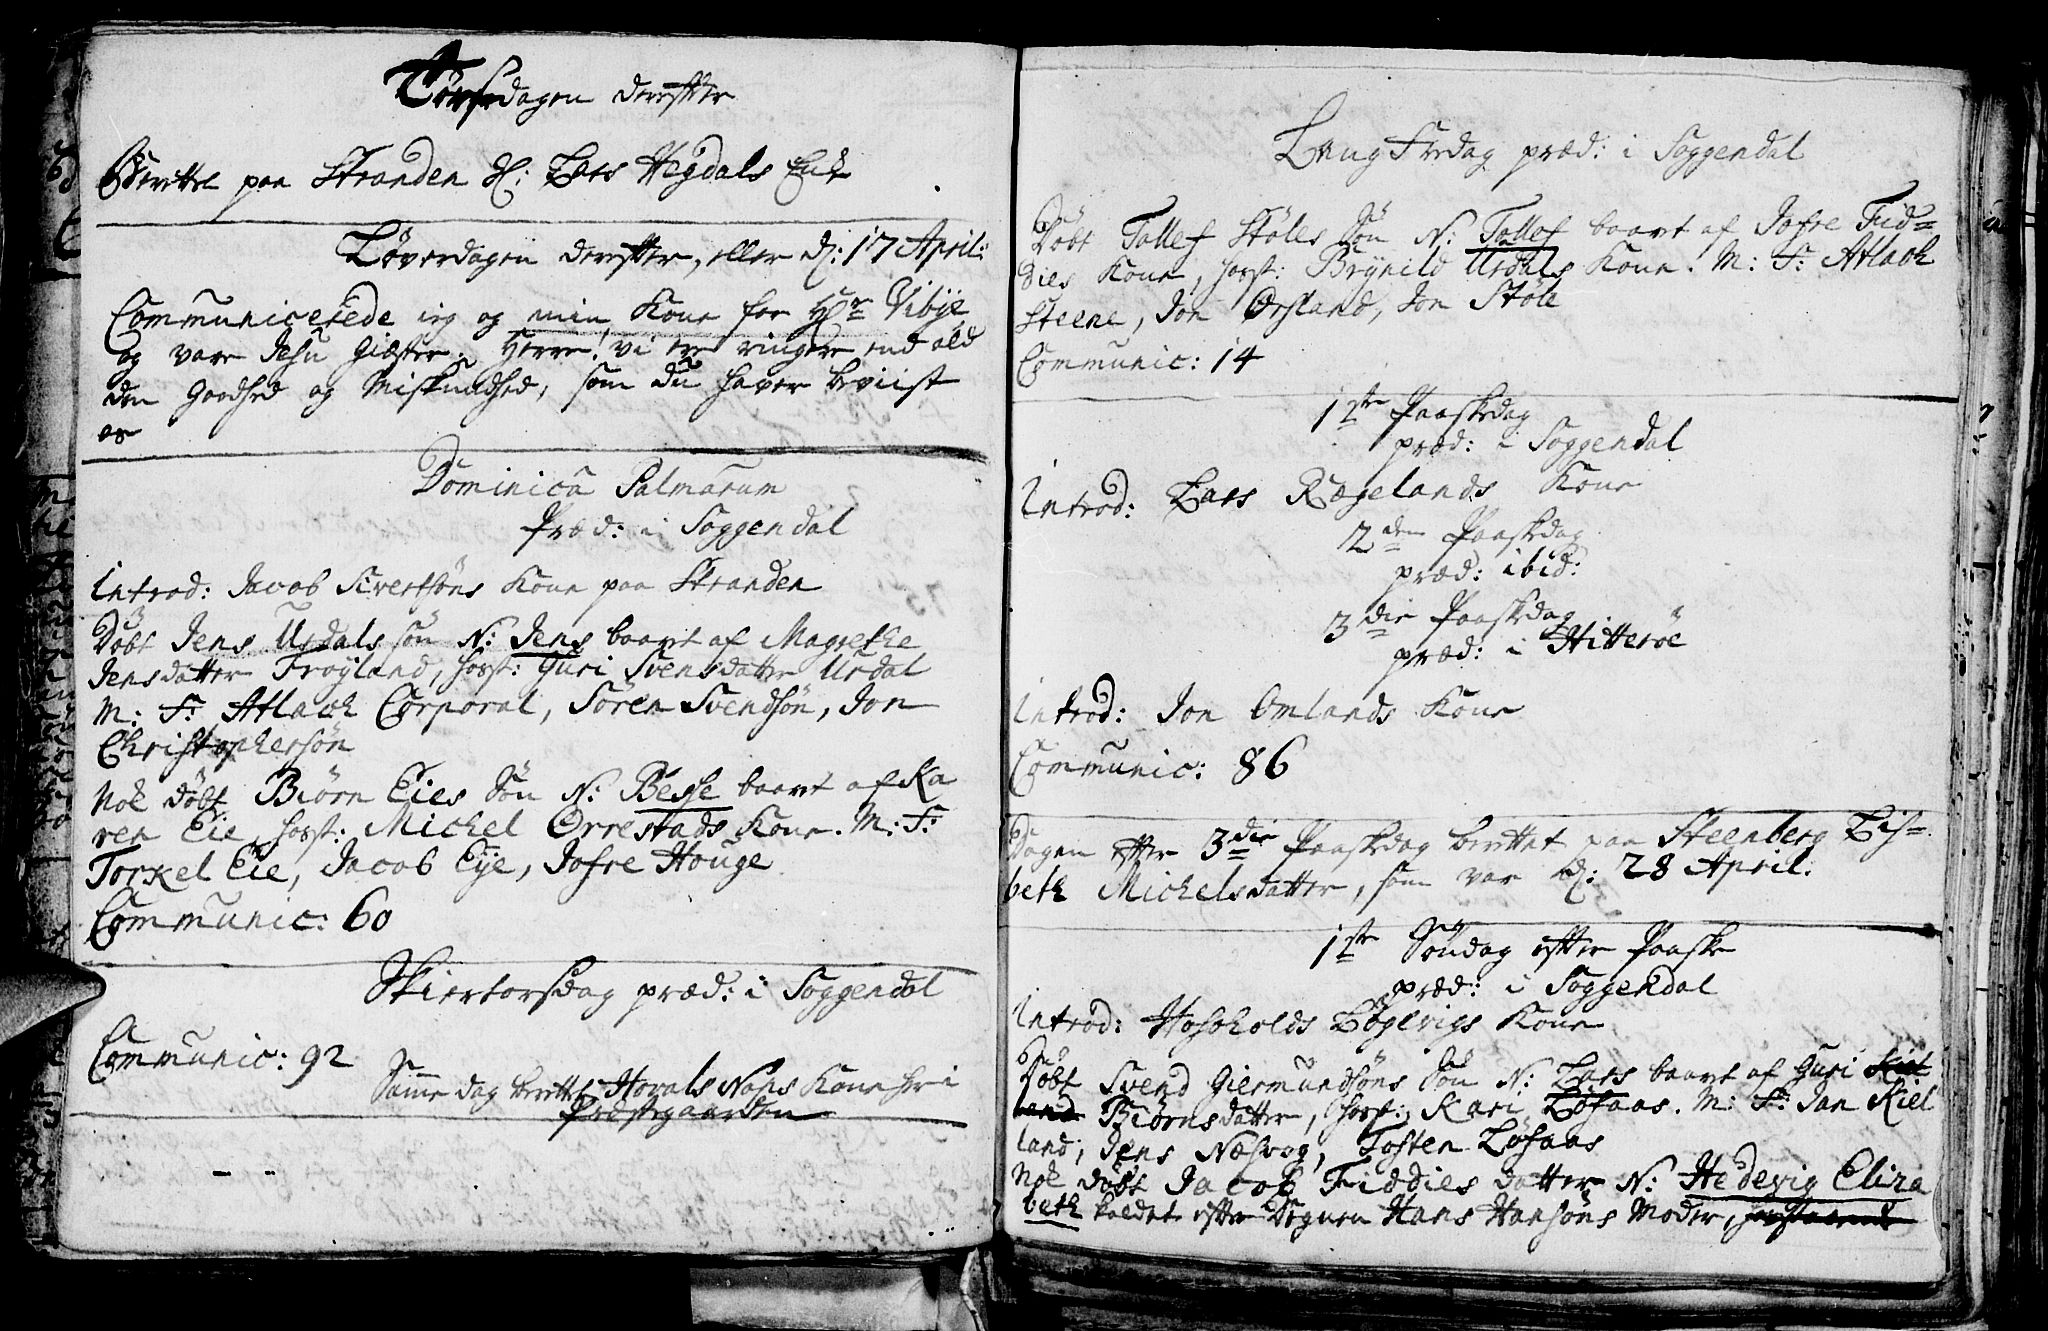 Torsdagen derefter
Berettet paa Stranden Sl: Lars Hegdals Enke
Løverdagen derefter, eller d: 17 April:
Communicerede jeg og min Kone for Hr Vibye
og vare Jesu Giæster. Herre! vi ere ringere end ald
den Godhed og Miskundhed, som du haver beviist
os
Dominica Palmarum
Præd: i Soggendal
Introd: Jacob Sivertsøns Kone paa Stranden
Døbt Jens Urdals søn N: Jens baaret af Magrethe
Jensdatter Frøyland, host: Guri Svensdatter Urdal
M: F: Atlach Corporal, Søren Svendsøn, Jon
Christophersøn
Nok døbt Biørn Eies Søn N: Besse baaret af Ka
ren Eie, host: Michel Orrestads Kone. M: F:
Torkel Eie, Jacob Eye, Jofre Houge
Communic: 60
Skiertorsdag præd: i Soggendal
Communic: 92
Samme dag berettet Hovals Nøsis Kone her i
Præstegaarden
Lang Fredag præd: i Soggendal
Døbt Tollef Støles Søn N: Tollef baaret af Jofre Fid=
dies Kone, host: Brynild Urdals Kone. M: F: Atlach
Steene, Jon Ørsland, Jon Støle
Communic: 14
1ste Paaskedag
præd: i Soggendal
Introd: Lars Rægelands Kone
2den Paaskedag
præd: ibid:
3die Paaskedag
præd: i Hitterøe
Introd: Jon Omlands Kone
Communic: 86
Dagen efter 3die Paaskedag berettet paa Steenberg Lis=
beth Michelsdatter, som var d: 28 April:
1ste Søndag efter Paaske
præd: i Soggendal
Introd: Hosoholds Løgevigs Kone
Døbt Svend Giermundsøns Søn N: Lars baaret af Guri Kiel
land Biørnsdatter, host: Kari Løfaas. M: F: Jan Kiel
land, Jens Næsvog, Tosten Løfaas
Nok døbt Jacob Fiddies datter N: Hedevig Eliza
beth kaldet efter Degnen Hans Hansøns Moder,